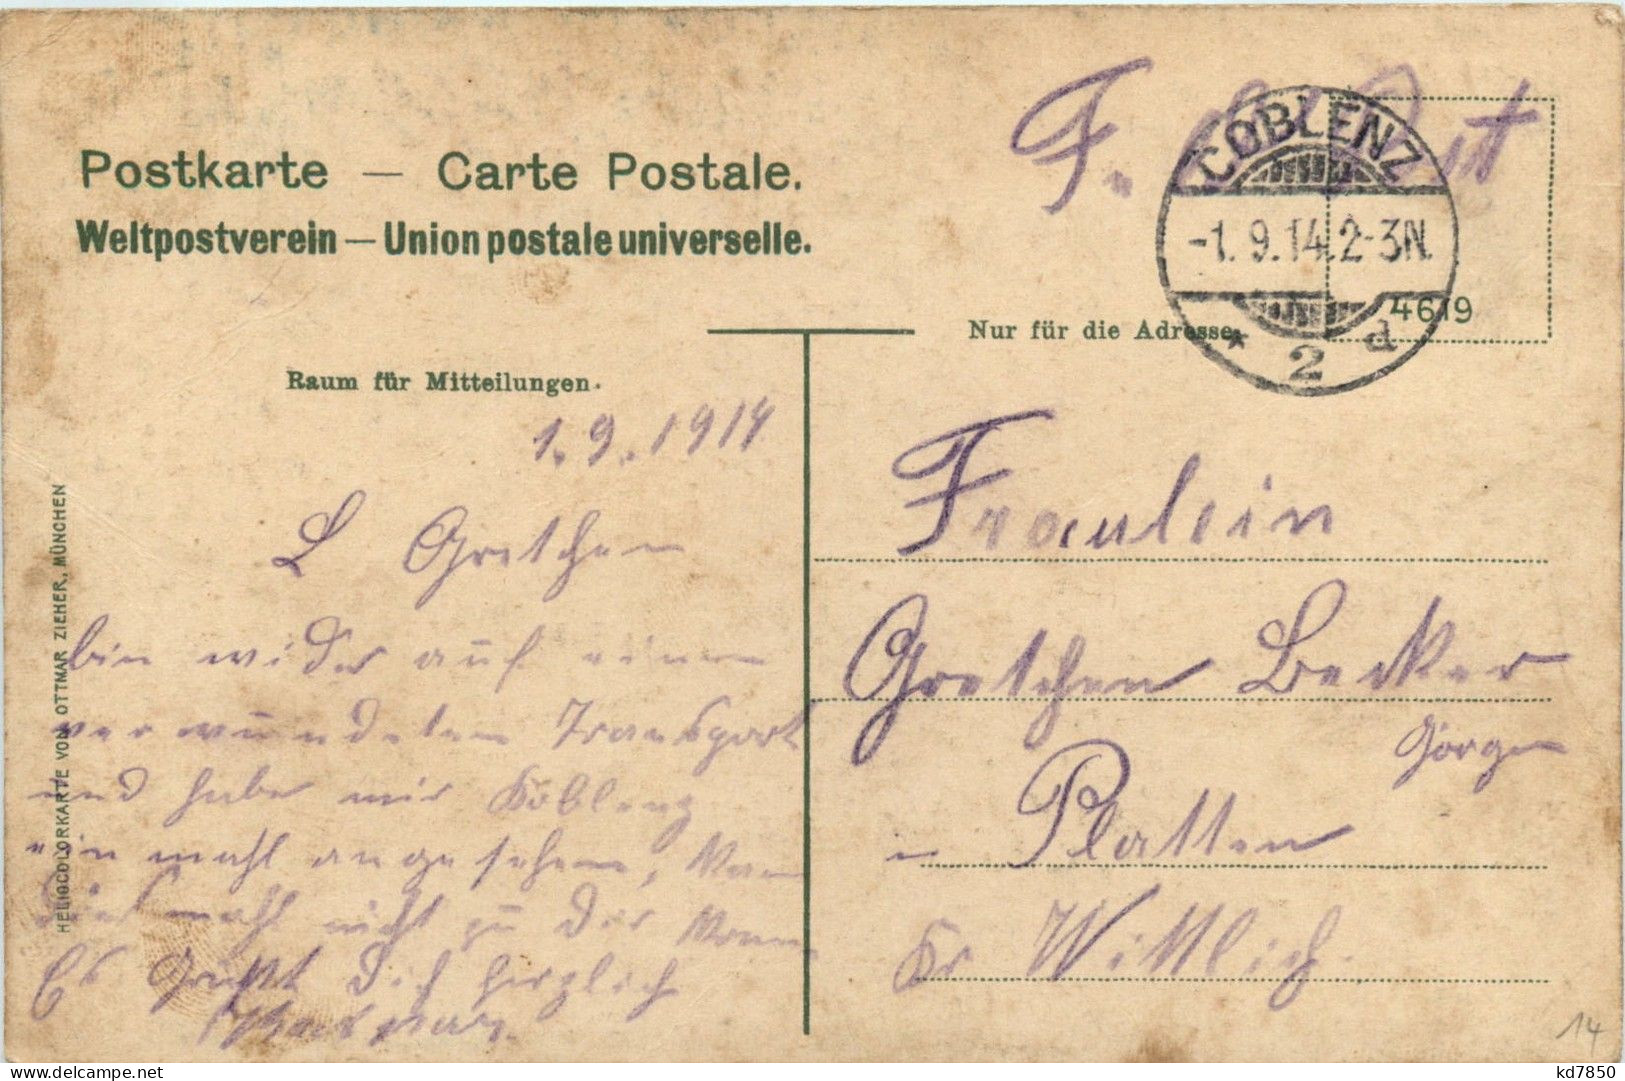 Postkarte — Carte Postale.
Weltpostverein — Union postale universelle.
F.
COBLENZ
-1.9.14.2-3N.
* 2 d
4619
Nur für die Adresse.
Raum für Mitteilungen.
1.9.1914
L Gretchen
bin wider auf einem
verwundeten Transport
und habe mir Koblenz
ein mahl angesehen,
mahl nicht zu der
Es Grüßt Dich herzlich
Fräulein
Gretchen Becker
Görgen
in Platten
Kr Wittlich.
HELIOCOLORKARTE VON OTTMAR ZIEHER, MÜNCHEN
14
kd7850